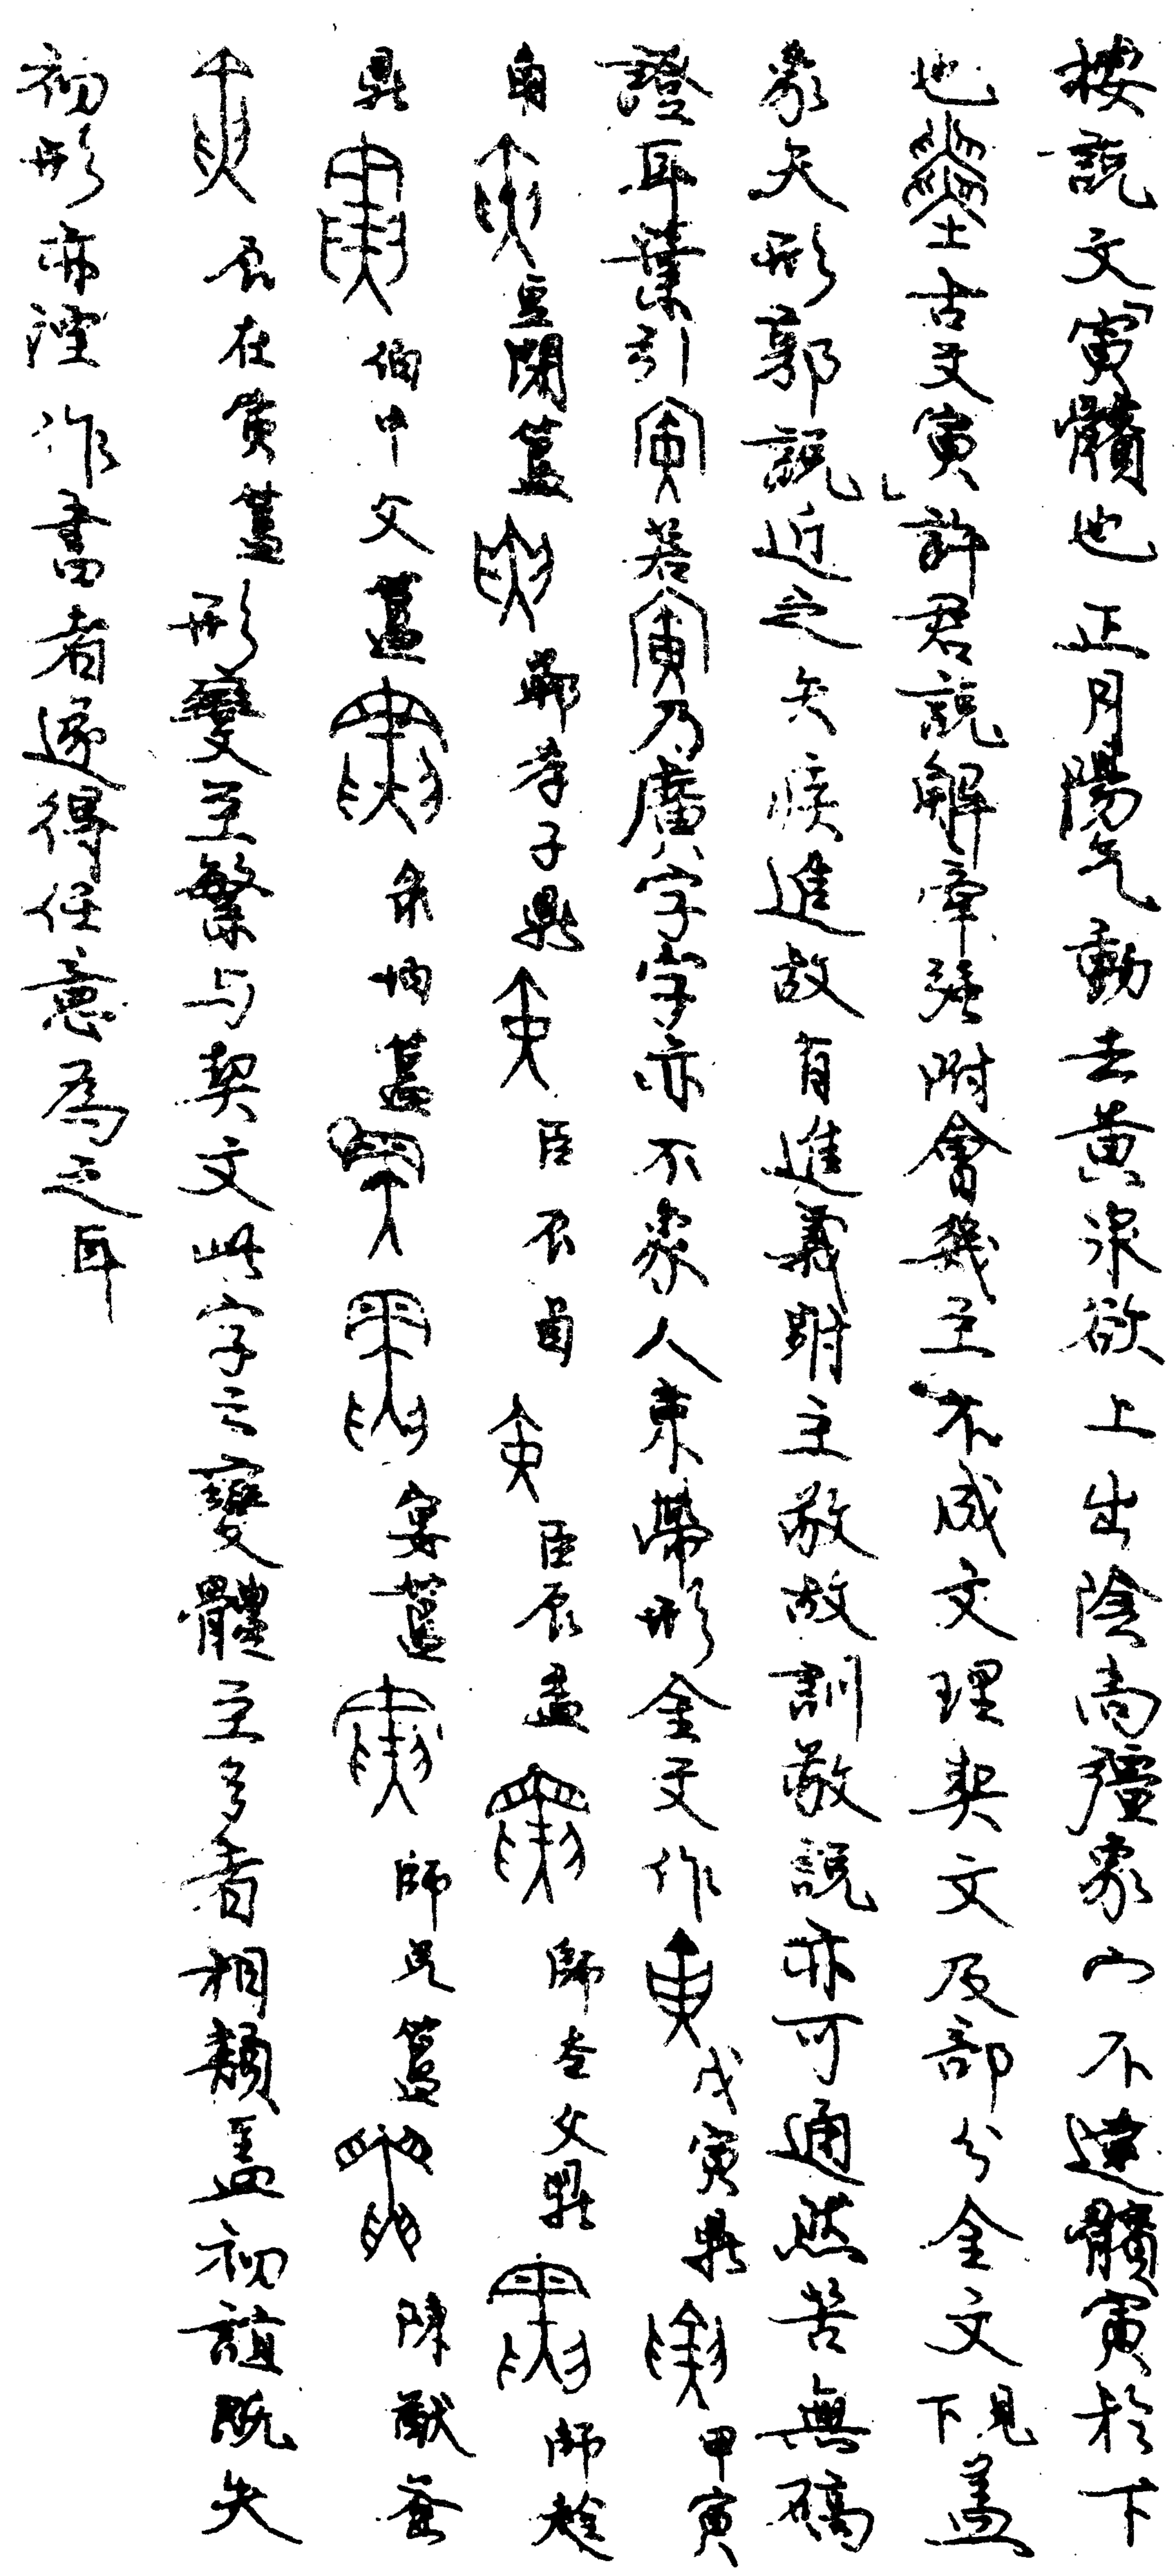 按説文「寅髕也正月陽气動去黄泉欲上出陰尚彊象宀不達髕寅於下
也古文寅」許君説解牽強附會幾至不成文理契文及部分金文見下蓋
象矢形郭説近之矢疾進故有進義附主敬故訓敬説亦可通然苦無碻
證耳葉引若乃廣字字亦不象人束帶形金文作戊寅鼎甲寅
角豆閉簋鄲孝子鼎臣辰卣臣辰盉師𡘇父鼎師趛
鼎伯中父簋簋宴簋師兑簋陳猷釜
辰在寅簋形變至繁与契文此字之變體至多者相類蓋初誼既失
初形亦湮作書者遂得任意為之耳